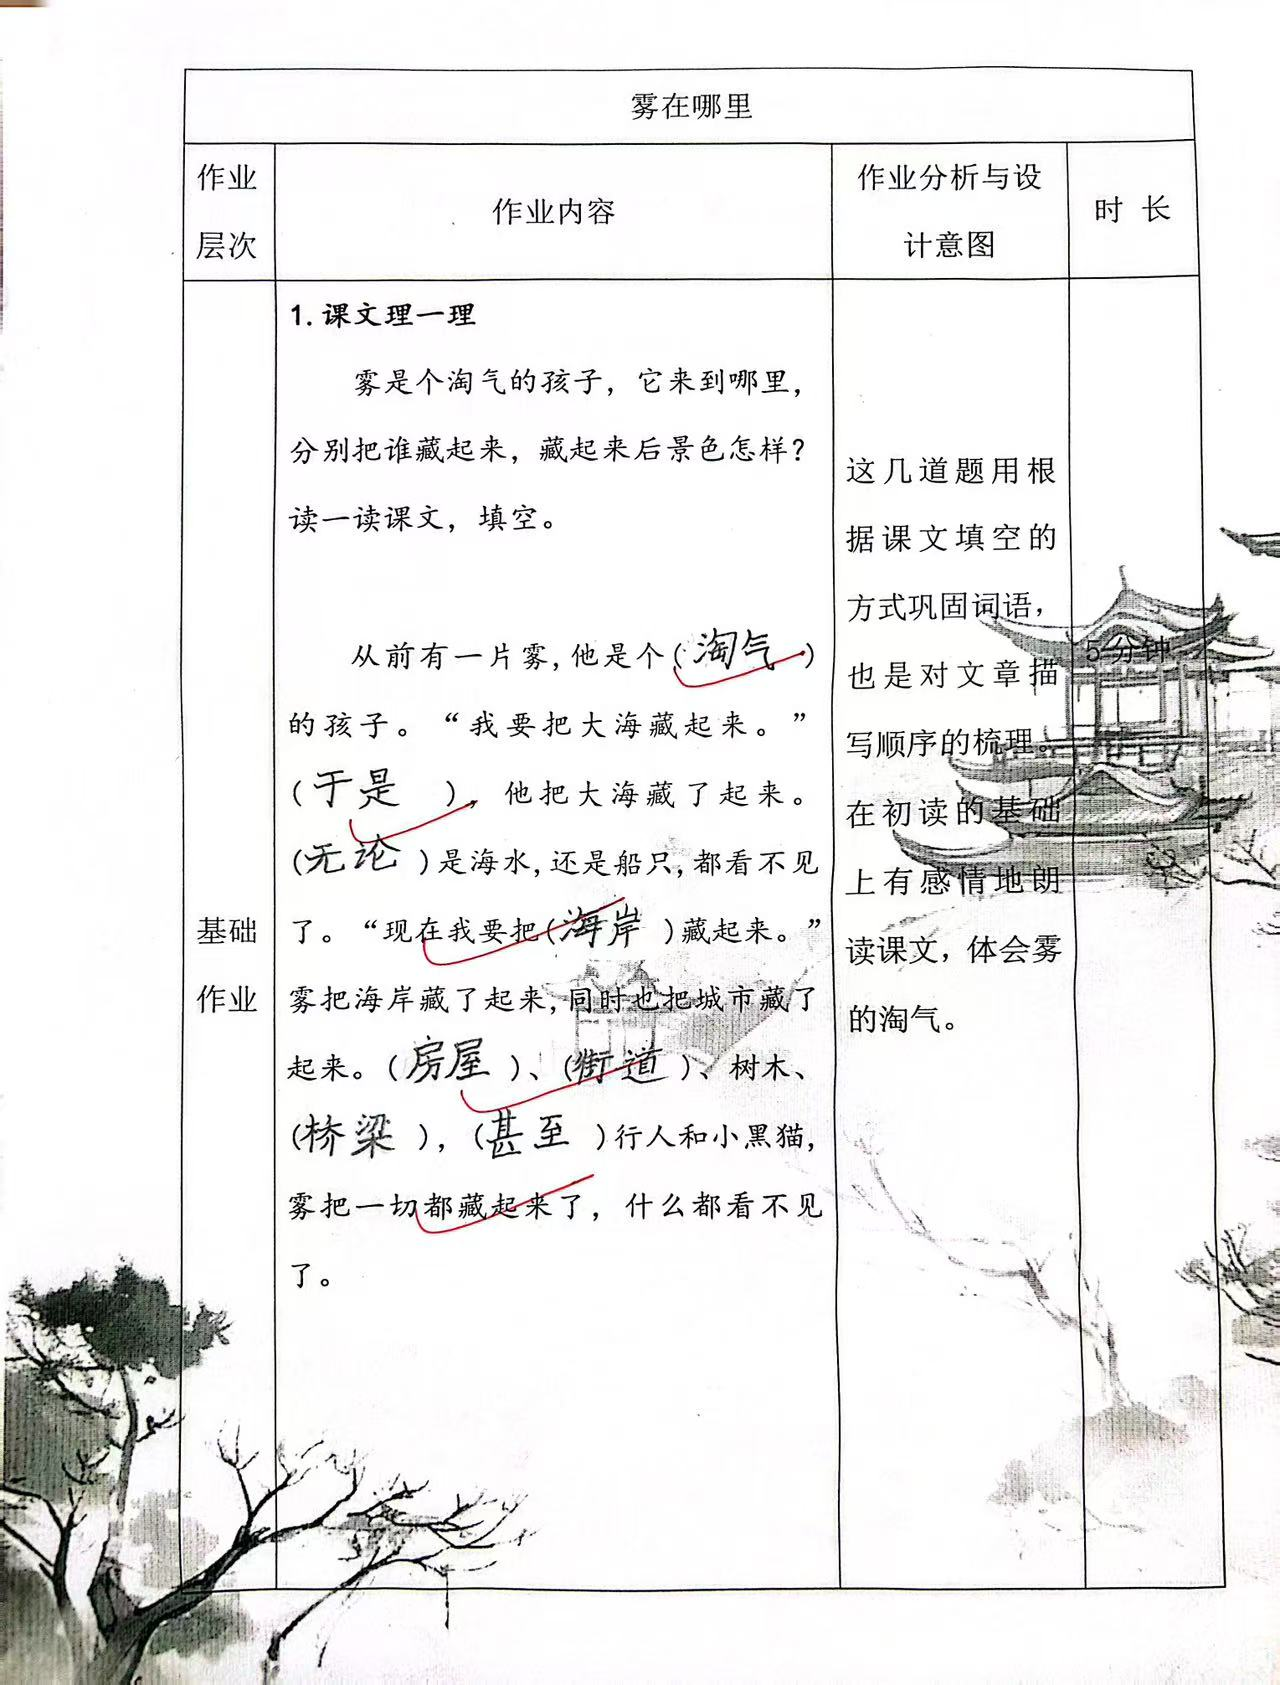 雾在哪里
作业
层次
作业内容
作业分析与设
计意图
时 长
基础
作业
1.课文理一理
雾是个淘气的孩子，它来到哪里，
分别把谁藏起来，藏起来后景色怎样？
读一读课文，填空。
从前有一片雾,他是个(淘气)
的孩子。“我要把大海藏起来。”
(于是 )，他把大海藏了起来。
(无论 )是海水,还是船只,都看不见
了。“现在我要把(海岸 )藏起来。”
雾把海岸藏了起来,同时也把城市藏了
起来。(房屋 )、(街道 )、树木、
(桥梁 )，(甚至 )行人和小黑猫,
雾把一切都藏起来了，什么都看不见
了。
这几道题用根
据课文填空的
方式巩固词语，
也是对文章描
写顺序的梳理。
在初读的基础
上有感情地朗
读课文，体会雾
的淘气。
5分钟